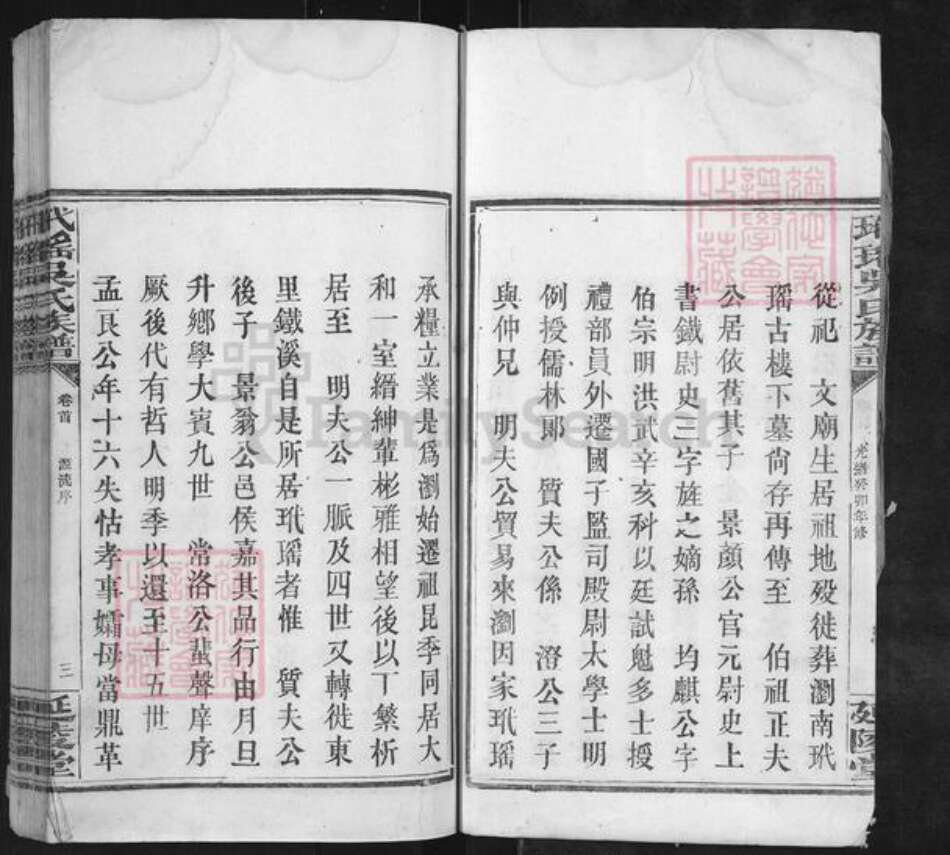 從祀　文廟生居祖地殁徙葬瀏南玳
瑤古樓下墓尙存再傳至　伯祖正夫
公居依舊其子　景顏公官元尉史上
書鐵尉史三字旌之嫡孫　均麒公字
伯宗明洪武辛亥科以廷試魁多士授
禮部員外遷國子監司殿尉太學士明
例授儒林郎　質夫公係　澄公三子
與仲兄　明夫公貿易來瀏因家玳瑤
光緒癸卯年修
承糧立業是爲瀏始遷祖昆季同居大
和一室縉紳輩彬雅相望後以丁繁析
居至　明夫公一脈及四世又轉徙東
里鐵溪自是所居玳瑤者惟　質夫公
後子　景翁公邑侯嘉其品行由月旦
升鄉學大賓九世　常洛公蜚聲庠序
厥後代有哲人明季以還至十五世
孟良公年十六失怙孝事孀母當鼎革
吳氏族譜
卷首
源流序
三
FamilySearch